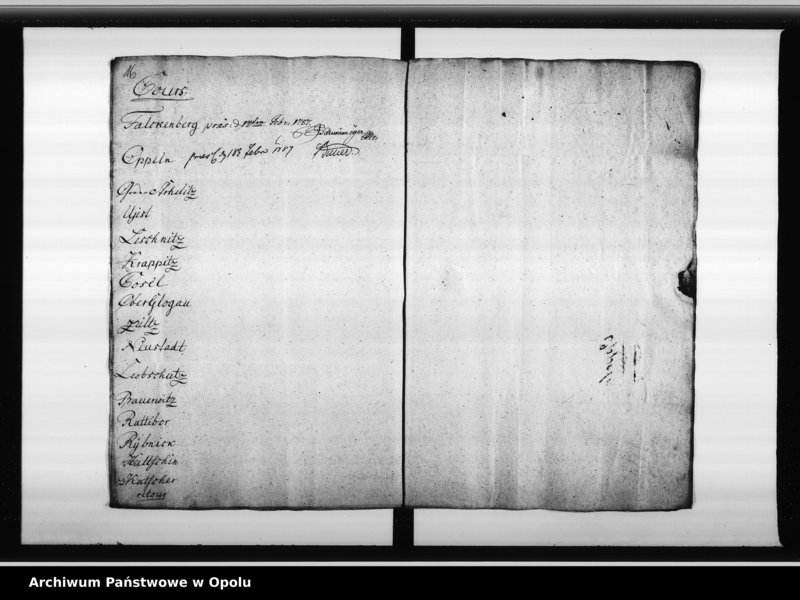 16
Cours.
Falckenberg præs. d. 17ten Febr. 1787
Oppeln præs. d. 18t Febr. 1787
Gros Strelitz
Ujest
Leschnitz
Krappitz
Cosel
OberGlogau
Zültz
Neustadt
Leobschütz
Bauerwitz
Rattibor
Rÿbnick
Hultschin
Katscher
retour
Archiwum Państwowe w Opolu